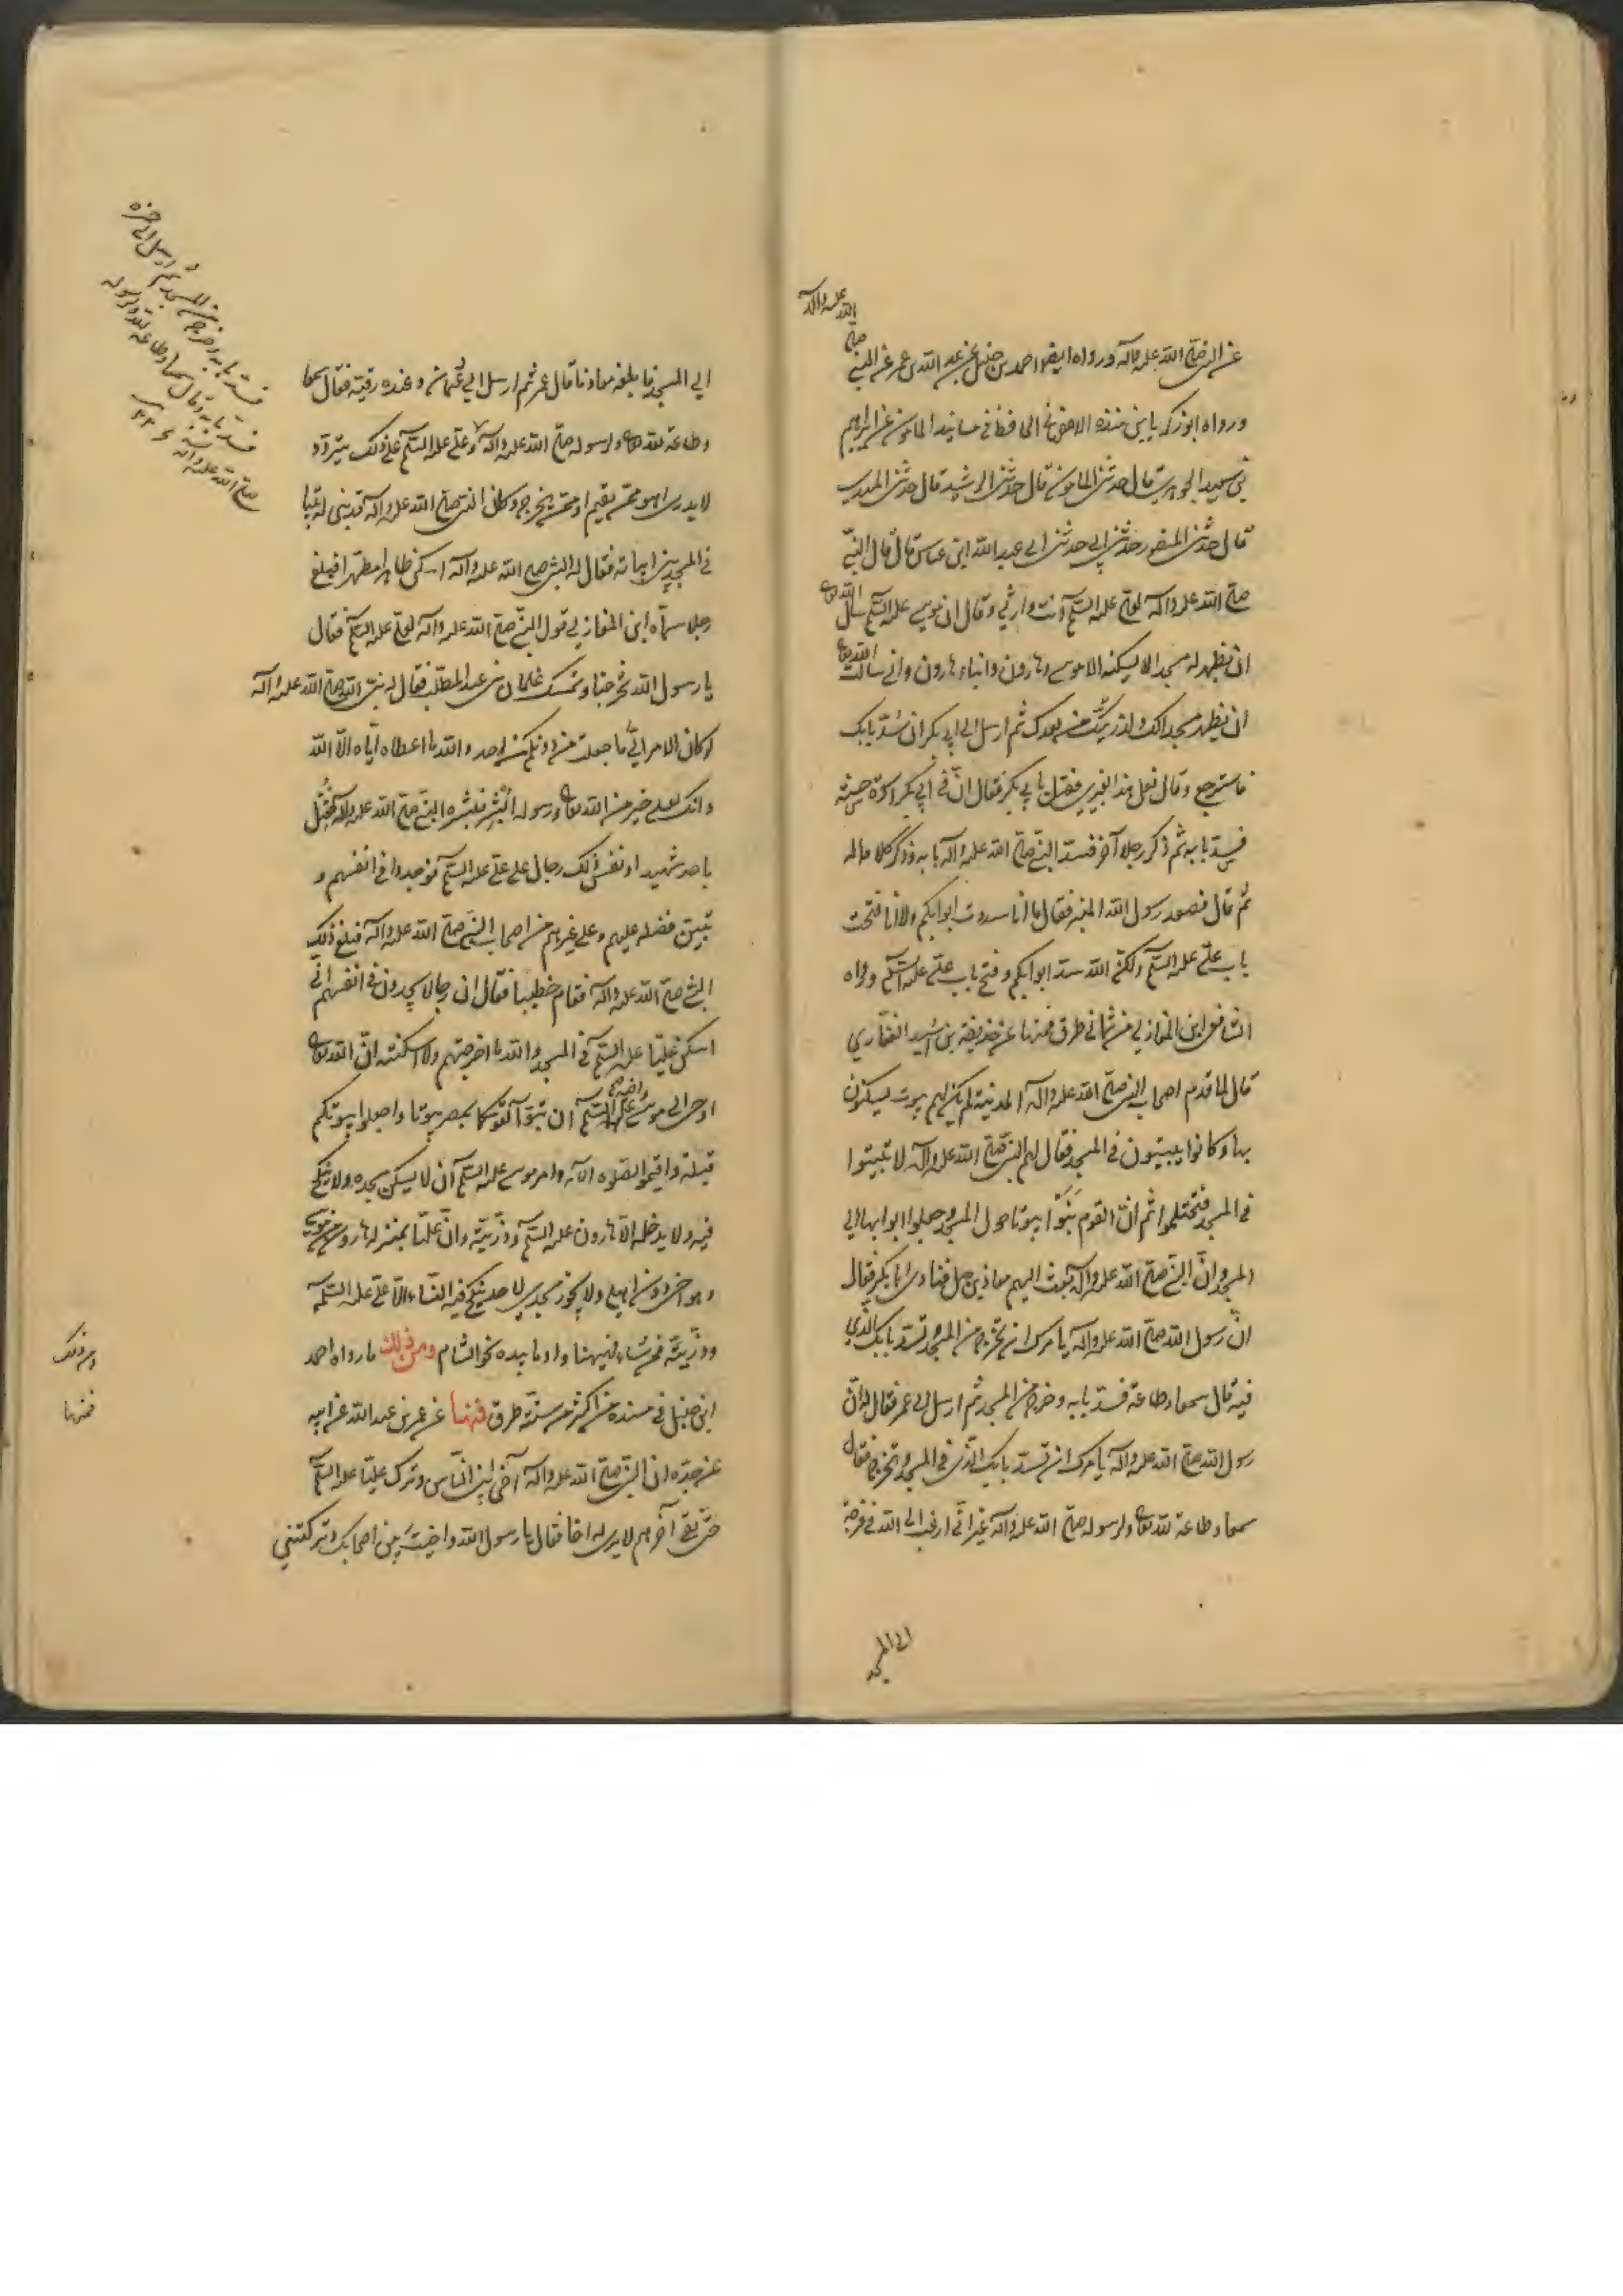 عن النبي صلى الله عليه وآله ورواه ايضا احمد بن حنبل عن عبد الله بن عمر عن النبي صلى
الله عليه وآله
ورواه ابو زكريا بن منده الاصفهاني الحافظ في مسانيد المامون عن ابراهيم
بن سعيد الجوهري قال حدثني المامون قال حدثني الرشيد قال حدثني المهدي
قال حدثني المنصور حدثني ابي حدثني ابي عبد الله ابن عباس قال قال النبي
صلى الله عليه وآله لعلي عليه السلم انت وارثي وقال ان موسى عليه السلم سال الله تعالى
ان يطهر له مسجدا لا يسكنه الا موسى وهارون وابناء هارون واني سالت الله تعالى
ان يطهر مسجدا لك ولذريتك من بعدك ثم ارسل الى ابي بكر ان سد بابك
فاسترجع وقال فعل هذا بغيري فقيل بابي بكر فقال ان في ابي بكر اسوة حسنة
فسد بابه ثم ذكر رجلا آخر فسد النبي صلى الله عليه وآله بابه وذكر كلاما له
ثم قال فصعد رسول الله المنبر فقال ما انا سددت ابوابكم ولا انا فتحت
باب علي عليه السلم ولكن الله سد ابوابكم وفتح باب علي عليه السلم ورواه
الشافعي ابن المغازلي من ثماني طرق فمنها عن حذيفة بن اسيد الغفاري
قال لما قدم اصحاب النبي صلى الله عليه وآله المدينة لم يكن لهم بيوت يسكنون
بها وكانوا يبيتون في المسجد فقال لهم النبي صلى الله عليه وآله لا تبيتوا
في المسجد فتحتلموا ثم ان القوم بنوا بيوتا حول المسجد وجعلوا ابوابها الى
المسجد وان النبي صلى الله عليه وآله بعث اليهم معاذ بن جبل فنادى ابا بكر فقال
ان رسول الله صلى الله عليه وآله يامرك ان تخرج من المسجد وتسد بابك الذي
فيه قال سمعا وطاعة فسد بابه وخرج من المسجد ثم ارسل الى عمر فقال له ان
رسول الله صلى الله عليه وآله يامرك ان تسد بابك الذي في المسجد وتخرج منه فقال
سمعا وطاعة لله تعالى ولرسوله صلى الله عليه وآله غير اني ارغب الى الله في خوخة
الى المسجد
الى المسجد فابلغه معاذ ما قال عمر ثم ارسل الى عثمان وعنده رقية فقال سمعا
وطاعة لله تعالى ولرسوله صلى الله عليه وآله وعلي عليه السلم على ذلك يتردد
لا يدري اهو ممن يقيم او ممن يخرج وكان النبي صلى الله عليه وآله قد بنى له بيتا
في المسجد بين ابياته فقال له النبي صلى الله عليه وآله اسكن طاهرا مطهرا فبلغ
رجلا سماه ابن المغازلي قول النبي صلى الله عليه وآله لعلي عليه السلم فقال
يا رسول الله تخرجنا وتمسك غلمان بني عبد المطلب فقال له نبي الله صلى الله عليه وآله
لو كان الامر الي ما جعلت من دونكم من احد والله ما اعطاه اياه الا الله
وانك لعلى خير من الله تعالى ورسوله ابشر فبشره النبي صلى الله عليه وآله فقتل
باحد شهيدا ونفس ذلك رجال على علي عليه السلم فوجدوا في انفسهم و
تبين فضله عليهم وعلى غيرهم من اصحاب النبي صلى الله عليه وآله فبلغ ذلك
النبي صلى الله عليه وآله فقام خطيبا فقال ان رجالا يجدون في انفسهم اني
اسكن عليا عليه السلم في المسجد والله ما اخرجتهم ولا اسكنته ان الله تعالى
اوحى الى موسى واخيه عليهما السلم ان تبوآ لقومكما بمصر بيوتا واجعلوا بيوتكم
قبلة واقيموا الصلوة الآية وامر موسى عليه السلم ان لا يسكن مسجده ولا ينكح
فيه ولا يدخله الا هارون عليه السلم وذريته وان عليا بمنزلة هارون من موسى
وهو اخي دون اهلي ولا يجوز مسجدي لاحد ينكح فيه النساء الا علي عليه السلم
وذريته فمن شاء فيهنا واوما بيده نحو الشام ومن ذلك ما رواه احمد
ابن حنبل في مسنده من اكثر من ستة طرق فمنها عن عمر بن عبد الله عن ابيه
عن جده ان النبي صلى الله عليه وآله آخى بين الناس وترك عليا عليه السلم
حتى بقي آخرهم لا يرى له اخا فقال يا رسول الله واخيت بين اصحابك وتركتني
فسد بابه وخرج من المسجد ثم ارسل الى حمزة
فسد بابه وقال سمعا وطاعة لله ولرسوله
صلى الله عليه وآله
ومن ذلك
فمنها